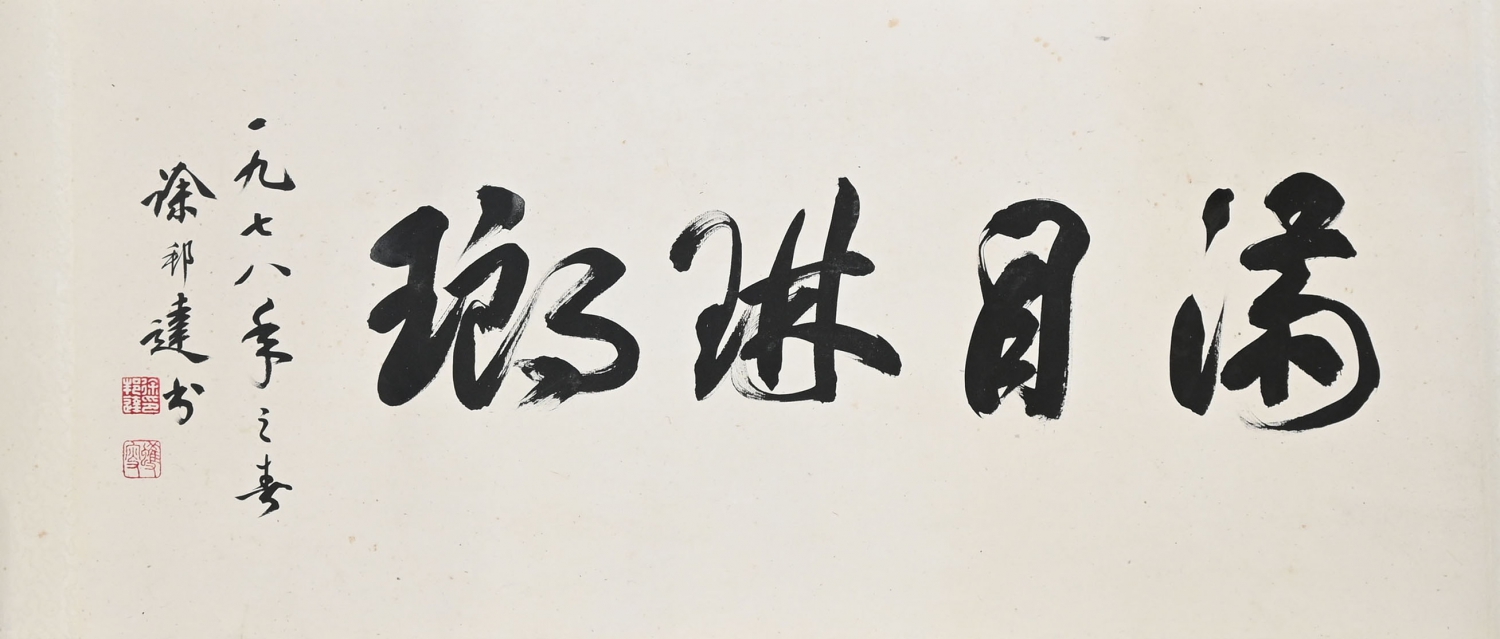 滿目琳瑯
一九七八年之春
徐邦達书
徐邦達印